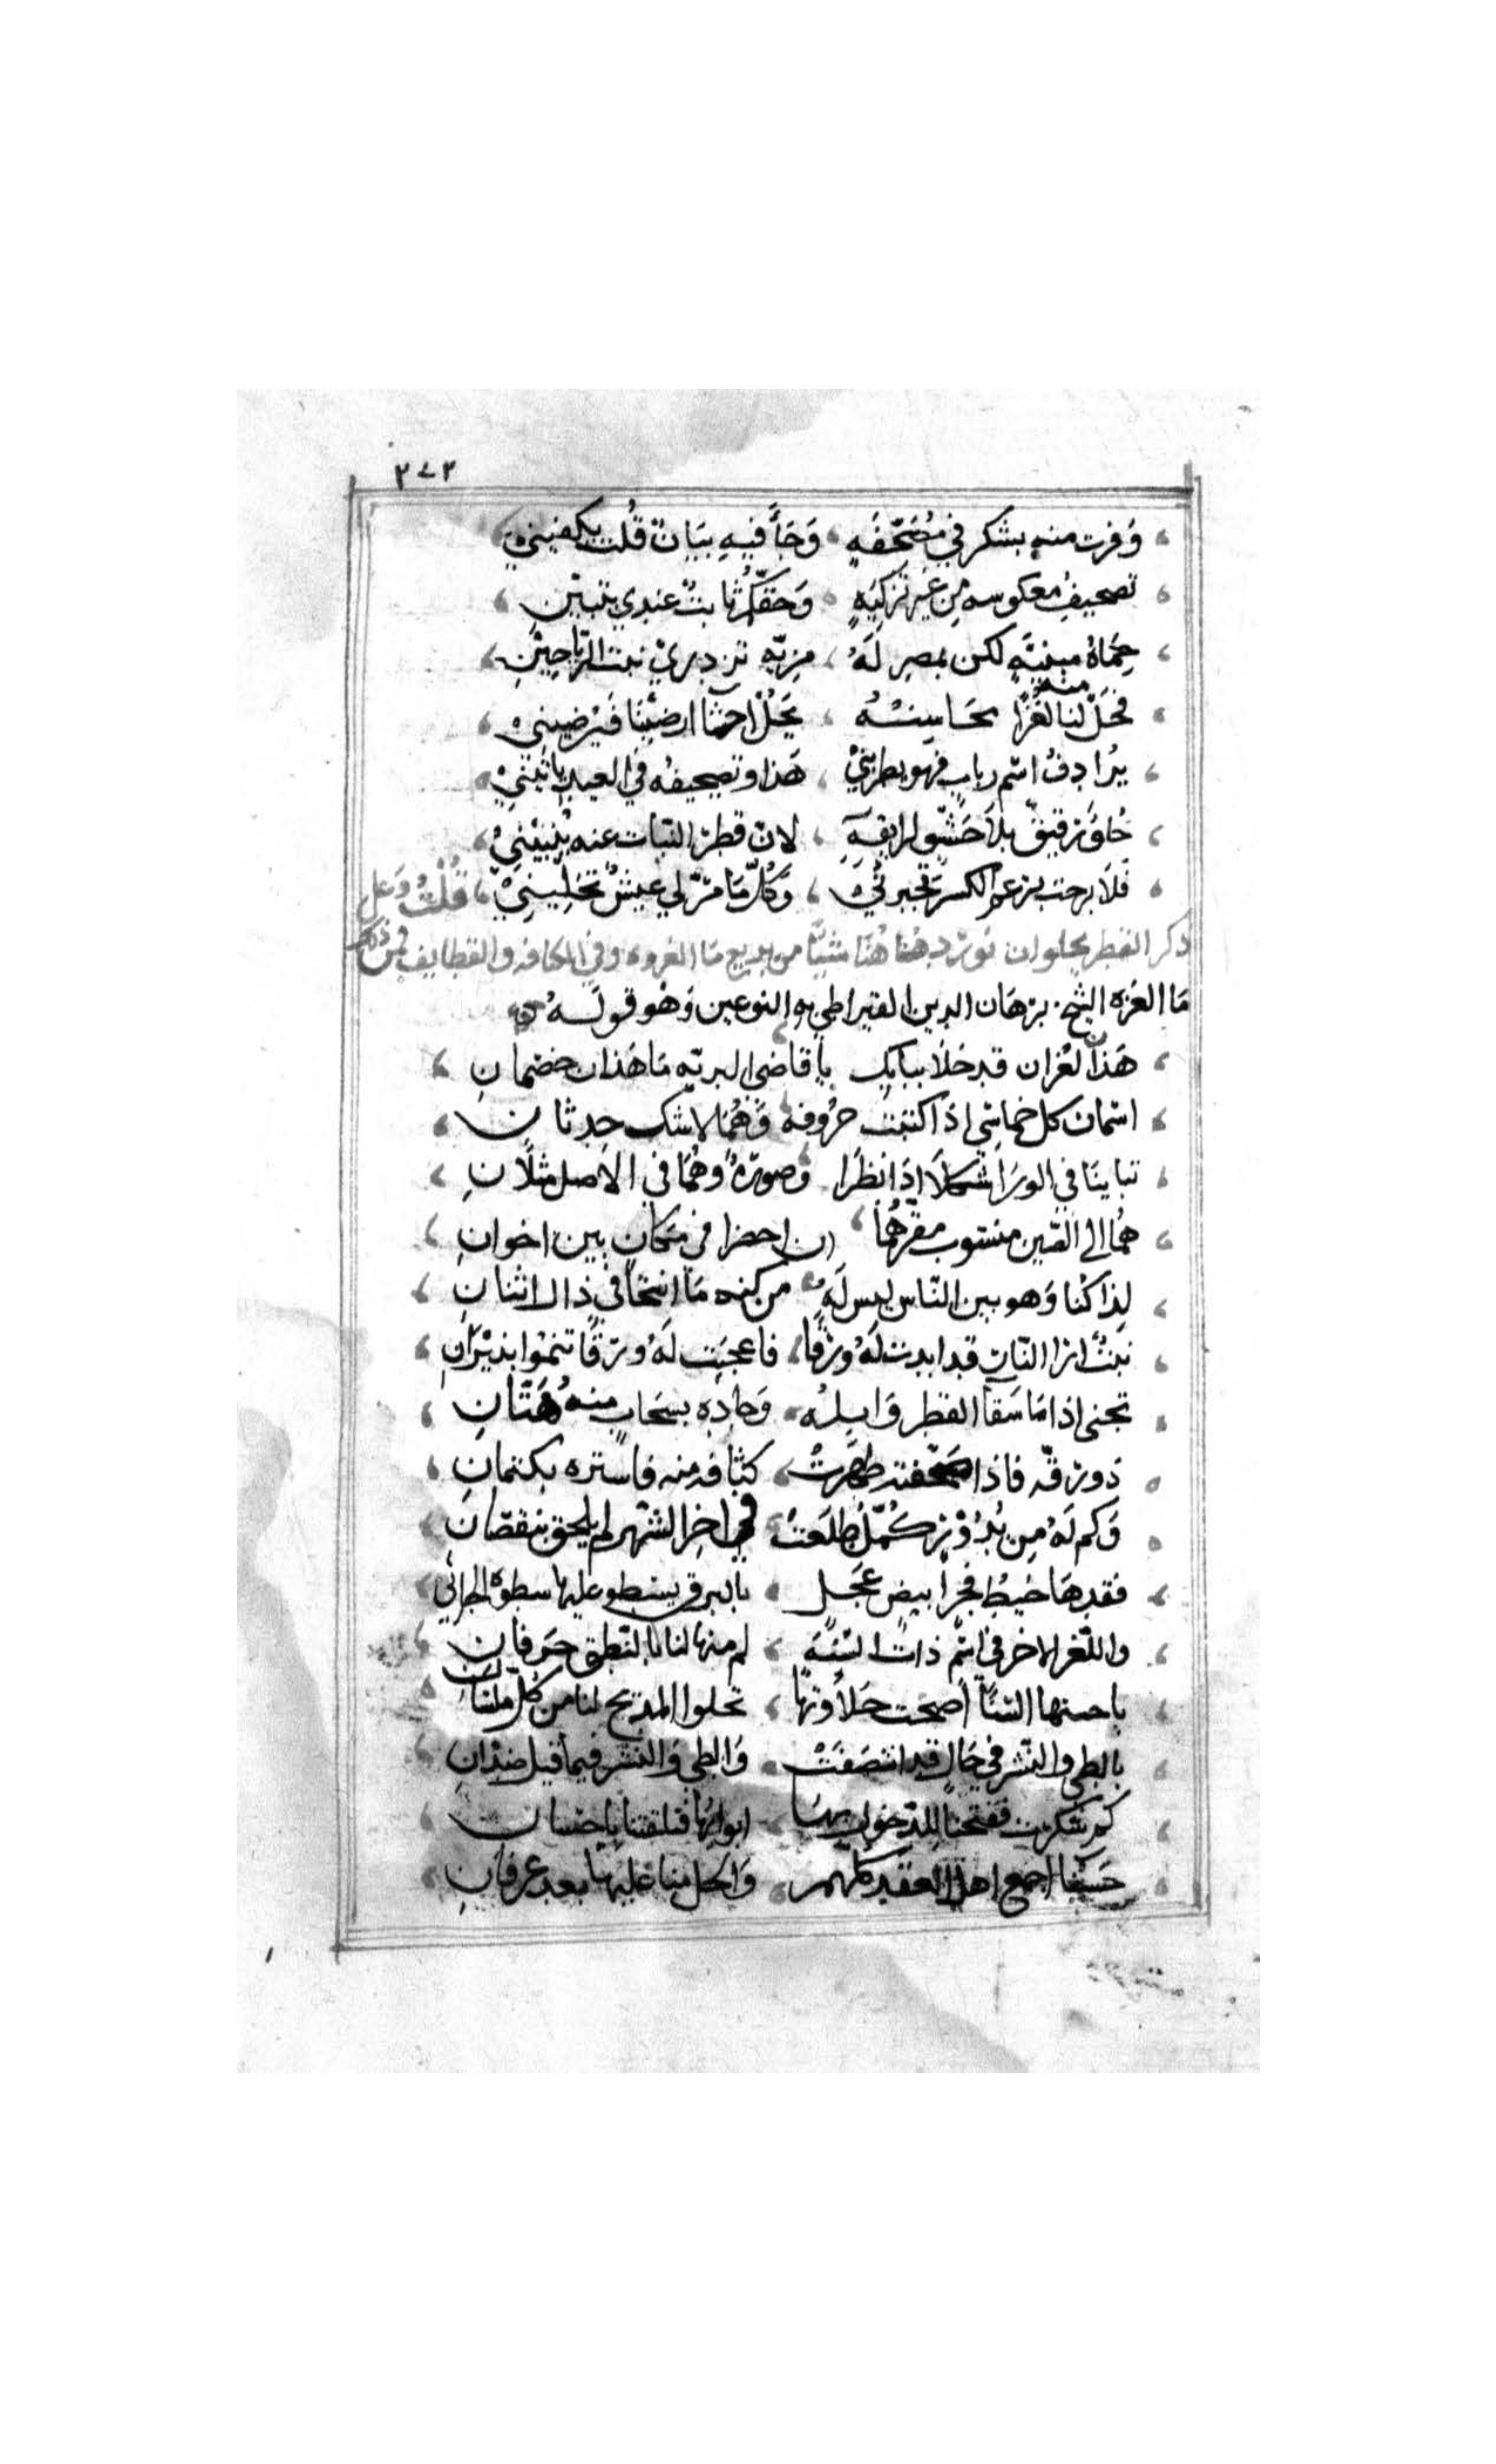 ٣٧٣
وَفزت منه بشكر في مُصَحّفَهِ وَجَأَ فيهِ بَيَانٌ قُلت يكفينيْ
تصحيفُ معكوسه مِن غير تزكيَهٍ وَحقّكم ثابتٌ عندي بتبيّنِ
حِمَاهُ مبنيّه لكن بمصرٍ لَهُ مزيّه تزدري نبت الرياحِيْنِ
فحَلّ لنا لغزًا منه محَاسِنُهُ يَحُلّ احشآ ارضيْنا فَيُرْضينيْ
يُرادِفُ اسم رباب فهو يطربنيْ هَذا وتصحيفُه في العيد ياتينيْ
حُلوٌ رَقيقٌ بلاَ حَشْوٍ لرايقهِ لانّ قطرَ النبات عنه يُنْبِيْنِيْ
فَلاَ برحت برغم الكسر تجبرنيْ وَكُلّ مَا مرّ لي عيشٌ تُحَلِينِيْ قُلْتُ وَعلى
ذكر القطر يحلو ان نورد هُنا شيئًا من بديع مَا الغزوه في الكنافه والقطايف فمن ذلك
مَا الغزه الشيخ برهَان الدين القيراطي في النوعين وَهُو قولَهُ
هَذان لغزان قد حَلاّ ببابك يا قاضي البريّه مَا هَذان خصمانِ
اسمان كل خماسي اذا كتبت حرُوفه وَهُمَا لا شك حدثانِ
تباينَا في الورَا شكلاً اذَا نظرَا وصورةً وهُمَا في الاصل مثلانِ
همُا الى الصّين منسوب مقرّهُما ان احضرا في مَكانٍ بين اخوانِ
لِذا كُنا وَهو بين النّاس ليس لَهُ من كنه مَا انتحَا في ذا لاثنانِ
نبتٌ انرا النّار قد ابدت لَهُ ورَقًا فاعجبَت لَهُ ورَقًا تنمُوا بنيْرَانِ
تجنى اذا مَا سَقَا القطر وَابِلُه وَجادِه بسَحَابٍ منهُ هَتّانِ
ذو رقّه فاذا صحّفته ظهَرتْ كثافه منه فاستره بكتمانِ
وَكم لَهُ مِن بُدُوْرٍ كُمَّلٍ طلَعَتْ في اخرِ الشهر لم يلحق بنقصَانِ
فقدهَا خيطُ فجرٍ ابيض عَجَلٍ بالبرق يسطو عليها سطوة الجاني
واللغز الاخر في اسْم ذات السنَه لم منها لنا بالنطق حَرفانِ
يا حسنها السنًا اضحت حَلاوتها تحلوا المديح لنا من كلّ ملسَانِ
بالطي والنشر في حَال قد اتصَفَتْ وَالطي وَالنشر فيما قيل ضِدّانِ
كم سُكّرت ففتحنا للدّخول بهَا ابوابَها فتلقتنا باحسَانِ
حَشْوُها اجمع اهل العقد كلهم وَالحل منا عليها بعد عرفانِ